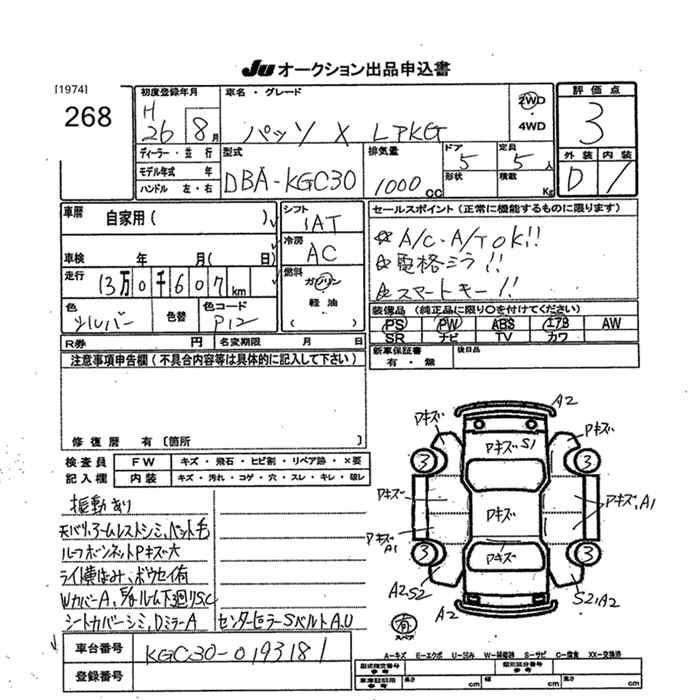 JU オークション出品申込書
[1974]
268
初度登録年月
H 26 8 月
車名・グレード
パッソ X LPKG
2WD
4WD
評価点
3
外装 内装
D /
ディーラー・並行
モデル年式 年
ハンドル 左・右
型式
DBA-KGC30
排気量
1000 cc
ドア
5
形状
定員
5 人
積載
Kg
車歴
自家用( )
車検 年 月( 日)
走行
13万0千607 km
色
シルバー
色替
色コード
P12
シフト
IAT
冷房
AC
燃料
ガソリン
軽油
( )
セールスポイント(正常に機能するものに限ります)
☆ A/C・A/T OK!!
☆ 電格ミラ!!
☆ スマートキー!!
装備品(純正品に限り○を付けてください)
PS PW ABS エアB AW
SR ナビ TV カワ
新車保証書
有・無
後日品
R券 円 名変期限 月 日
注意事項申告欄(不具合内容等は具体的に記入して下さい)
修復歴 有〔箇所 〕
検査員 FW キズ・飛石・ヒビ割・リペア跡・×要
記入欄 内装 キズ・汚れ・コゲ・穴・スレ・キレ・破レ
振動あり
天バリ、アームレストシミ、ペット毛
ルーフボンネットPキズ大
ライト横はみ、ボウセイ有
WカバーA、下廻りS,C
シートカバーシミ、DミラーA
センターピラーSベルトA,U
車台番号
KGC30-0193181
登録番号
A2
Pキズ
Pキズ
PキズS1
3
3
Pキズ
Pキズ
Pキズ、A1
Pキズ
A1
Pキズ
3
3
A2S2
S2,A2
A2
有
スペア
A-キズ E-エクボ U-凹み W-補修跡 S-サビ C-腐食 XX-交換済
型式指定番号
参考
類別区分番号
参考
車庫証明用
参考
長さ cm 幅 cm 高さ cm